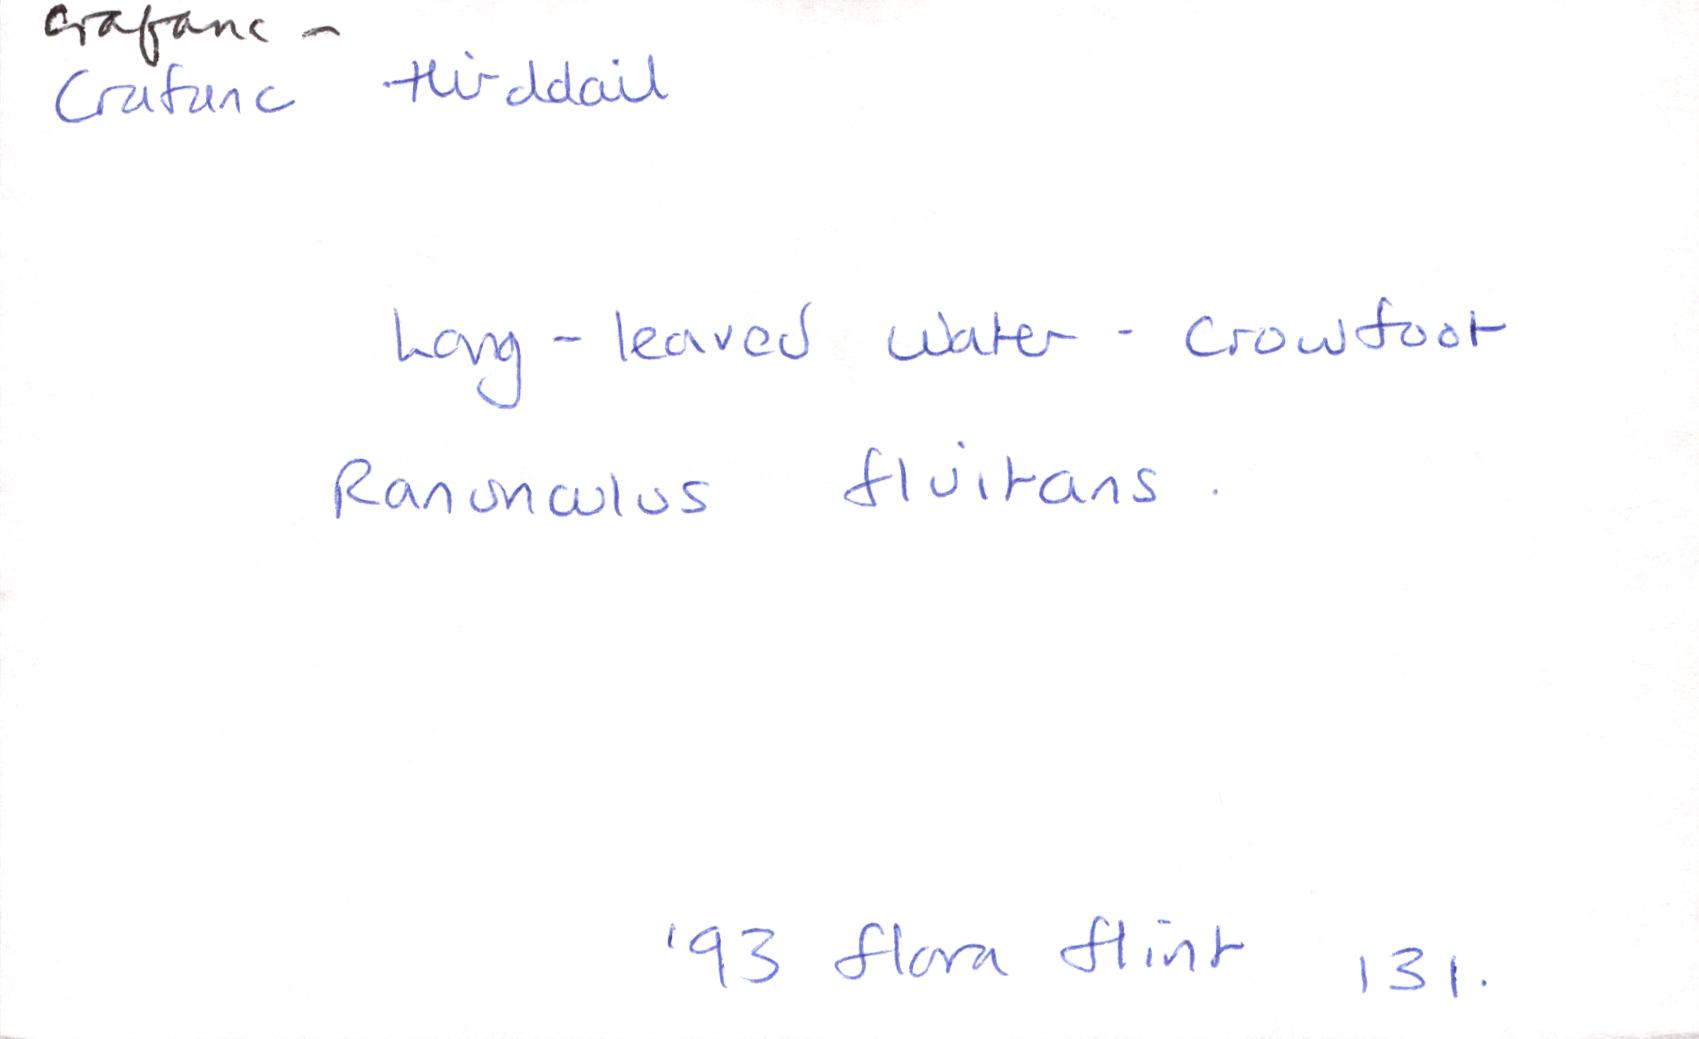 crafanc -
Crafanc Hirddail
Long - leaved water - crowfoot
Ranunculus fluitans .
'93 flora flint 131.